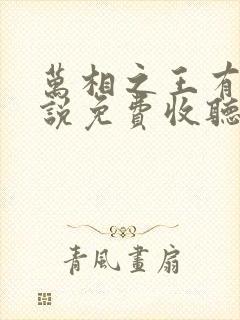 萬相之王有
說免費收聽
青風畫扇